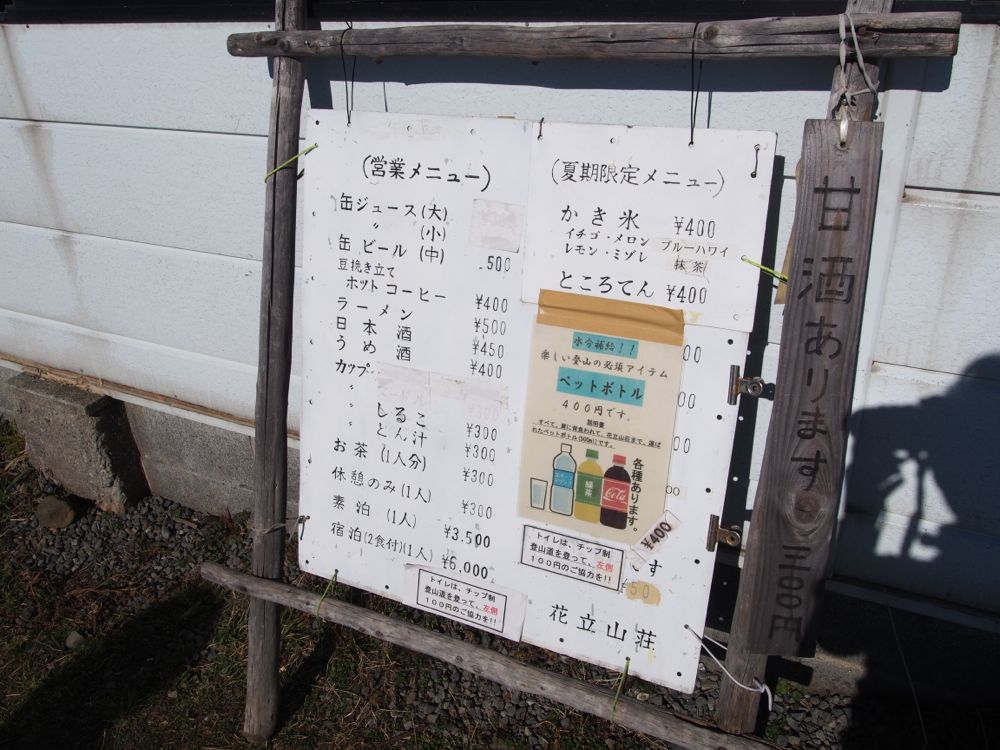 (営業メニュー)
缶ジュース(大)
〃 (小)
缶ビール(中) 500
豆挽き立て
ホットコーヒー ¥400
ラーメン ¥500
日本酒 ¥450
うめ酒 ¥400
カップ
〃 しるこ ¥300
〃 とん汁 ¥300
お茶(1人分) ¥300
休憩のみ(1人) ¥300
素泊(1人) ¥3.500
宿泊(2食付)(1人) ¥6,000
トイレは、チップ制
登山道を登って、左側
100円のご協力を!!
(夏期限定メニュー)
かき氷 ¥400
イチゴ・メロン ブルーハワイ
レモン・ミゾレ 抹茶
ところてん ¥400
水分補給!!
楽しい登山の必須アイテム
ペットボトル
400円です。
説明書
すべて、肩に背負われて、花立山荘まで、運ば
れたペットボトル(500ml)です。
各種あります。
緑茶
Coca-Cola
¥400
トイレは、チップ制
登山道を登って、左側
100円のご協力を!!
です
50
花立山荘
甘酒あります 三〇〇円